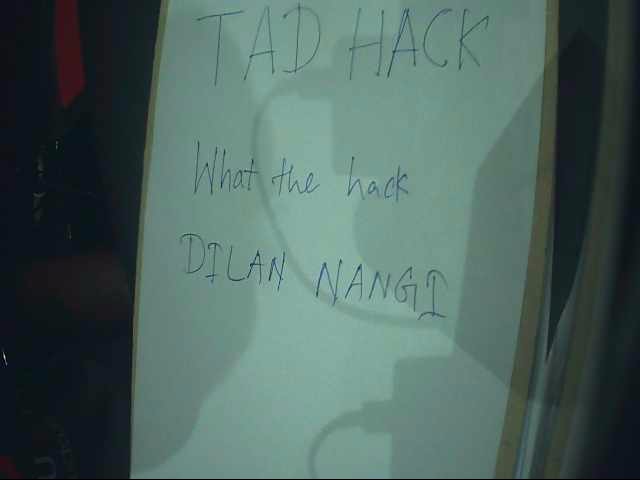 TAD HACK
What the hack
DILAN NANGI